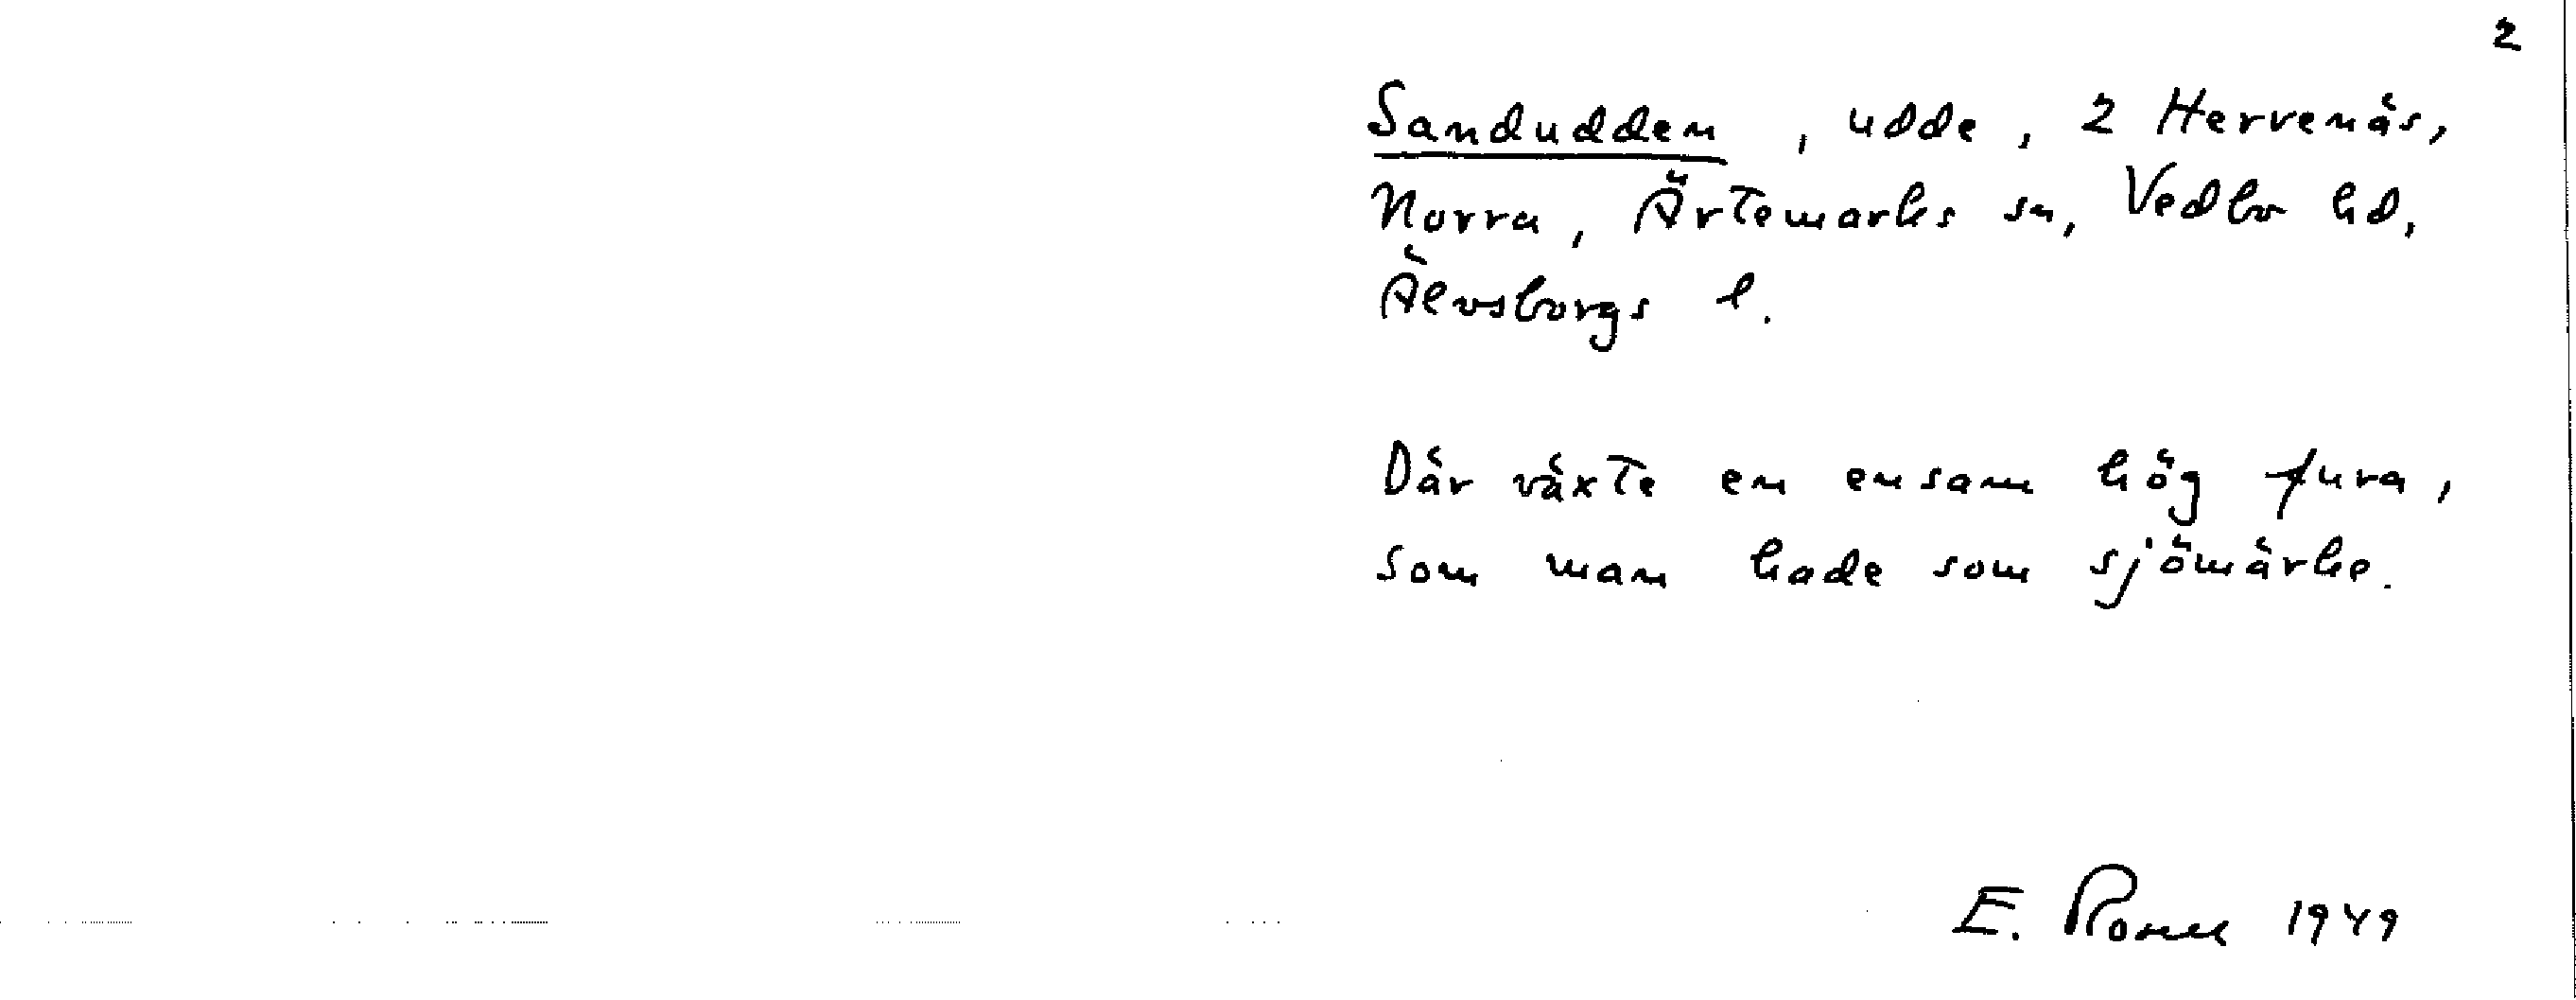 2
Sandudden , udde , 2 Hervenäs,
Norra, Ärtemarks sn, Vedbo hd,
Älvsborgs l.
Där växte en ensam hög fura,
som man hade som sjömärke.
E. 1949